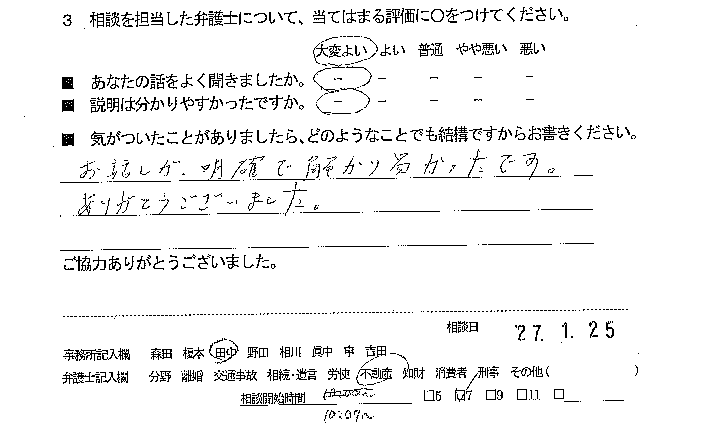 3 相談を担当した弁護士について、当てはまる評価に〇をつけてください。
大変よい よい 普通 やや悪い 悪い
■ あなたの話をよく聞きましたか。 － － － － －
■ 説明は分かりやすかったですか。 － － － － －
■ 気がついたことがありましたら、どのようなことでも結構ですからお書きください。
お話しが、明確で解かり易かったです。
ありがとうございました。
ご協力ありがとうございました。
相談日 27. 1. 25
事務所記入欄 森田 榎本 田中 野田 相川 眞中 車 吉田
弁護士記入欄 分野 離婚 交通事故 相続・遺言 労使 不動産 知財 消費者 刑事 その他( )
相談開始時間 □5 □7 □9 □11 □
10:07~